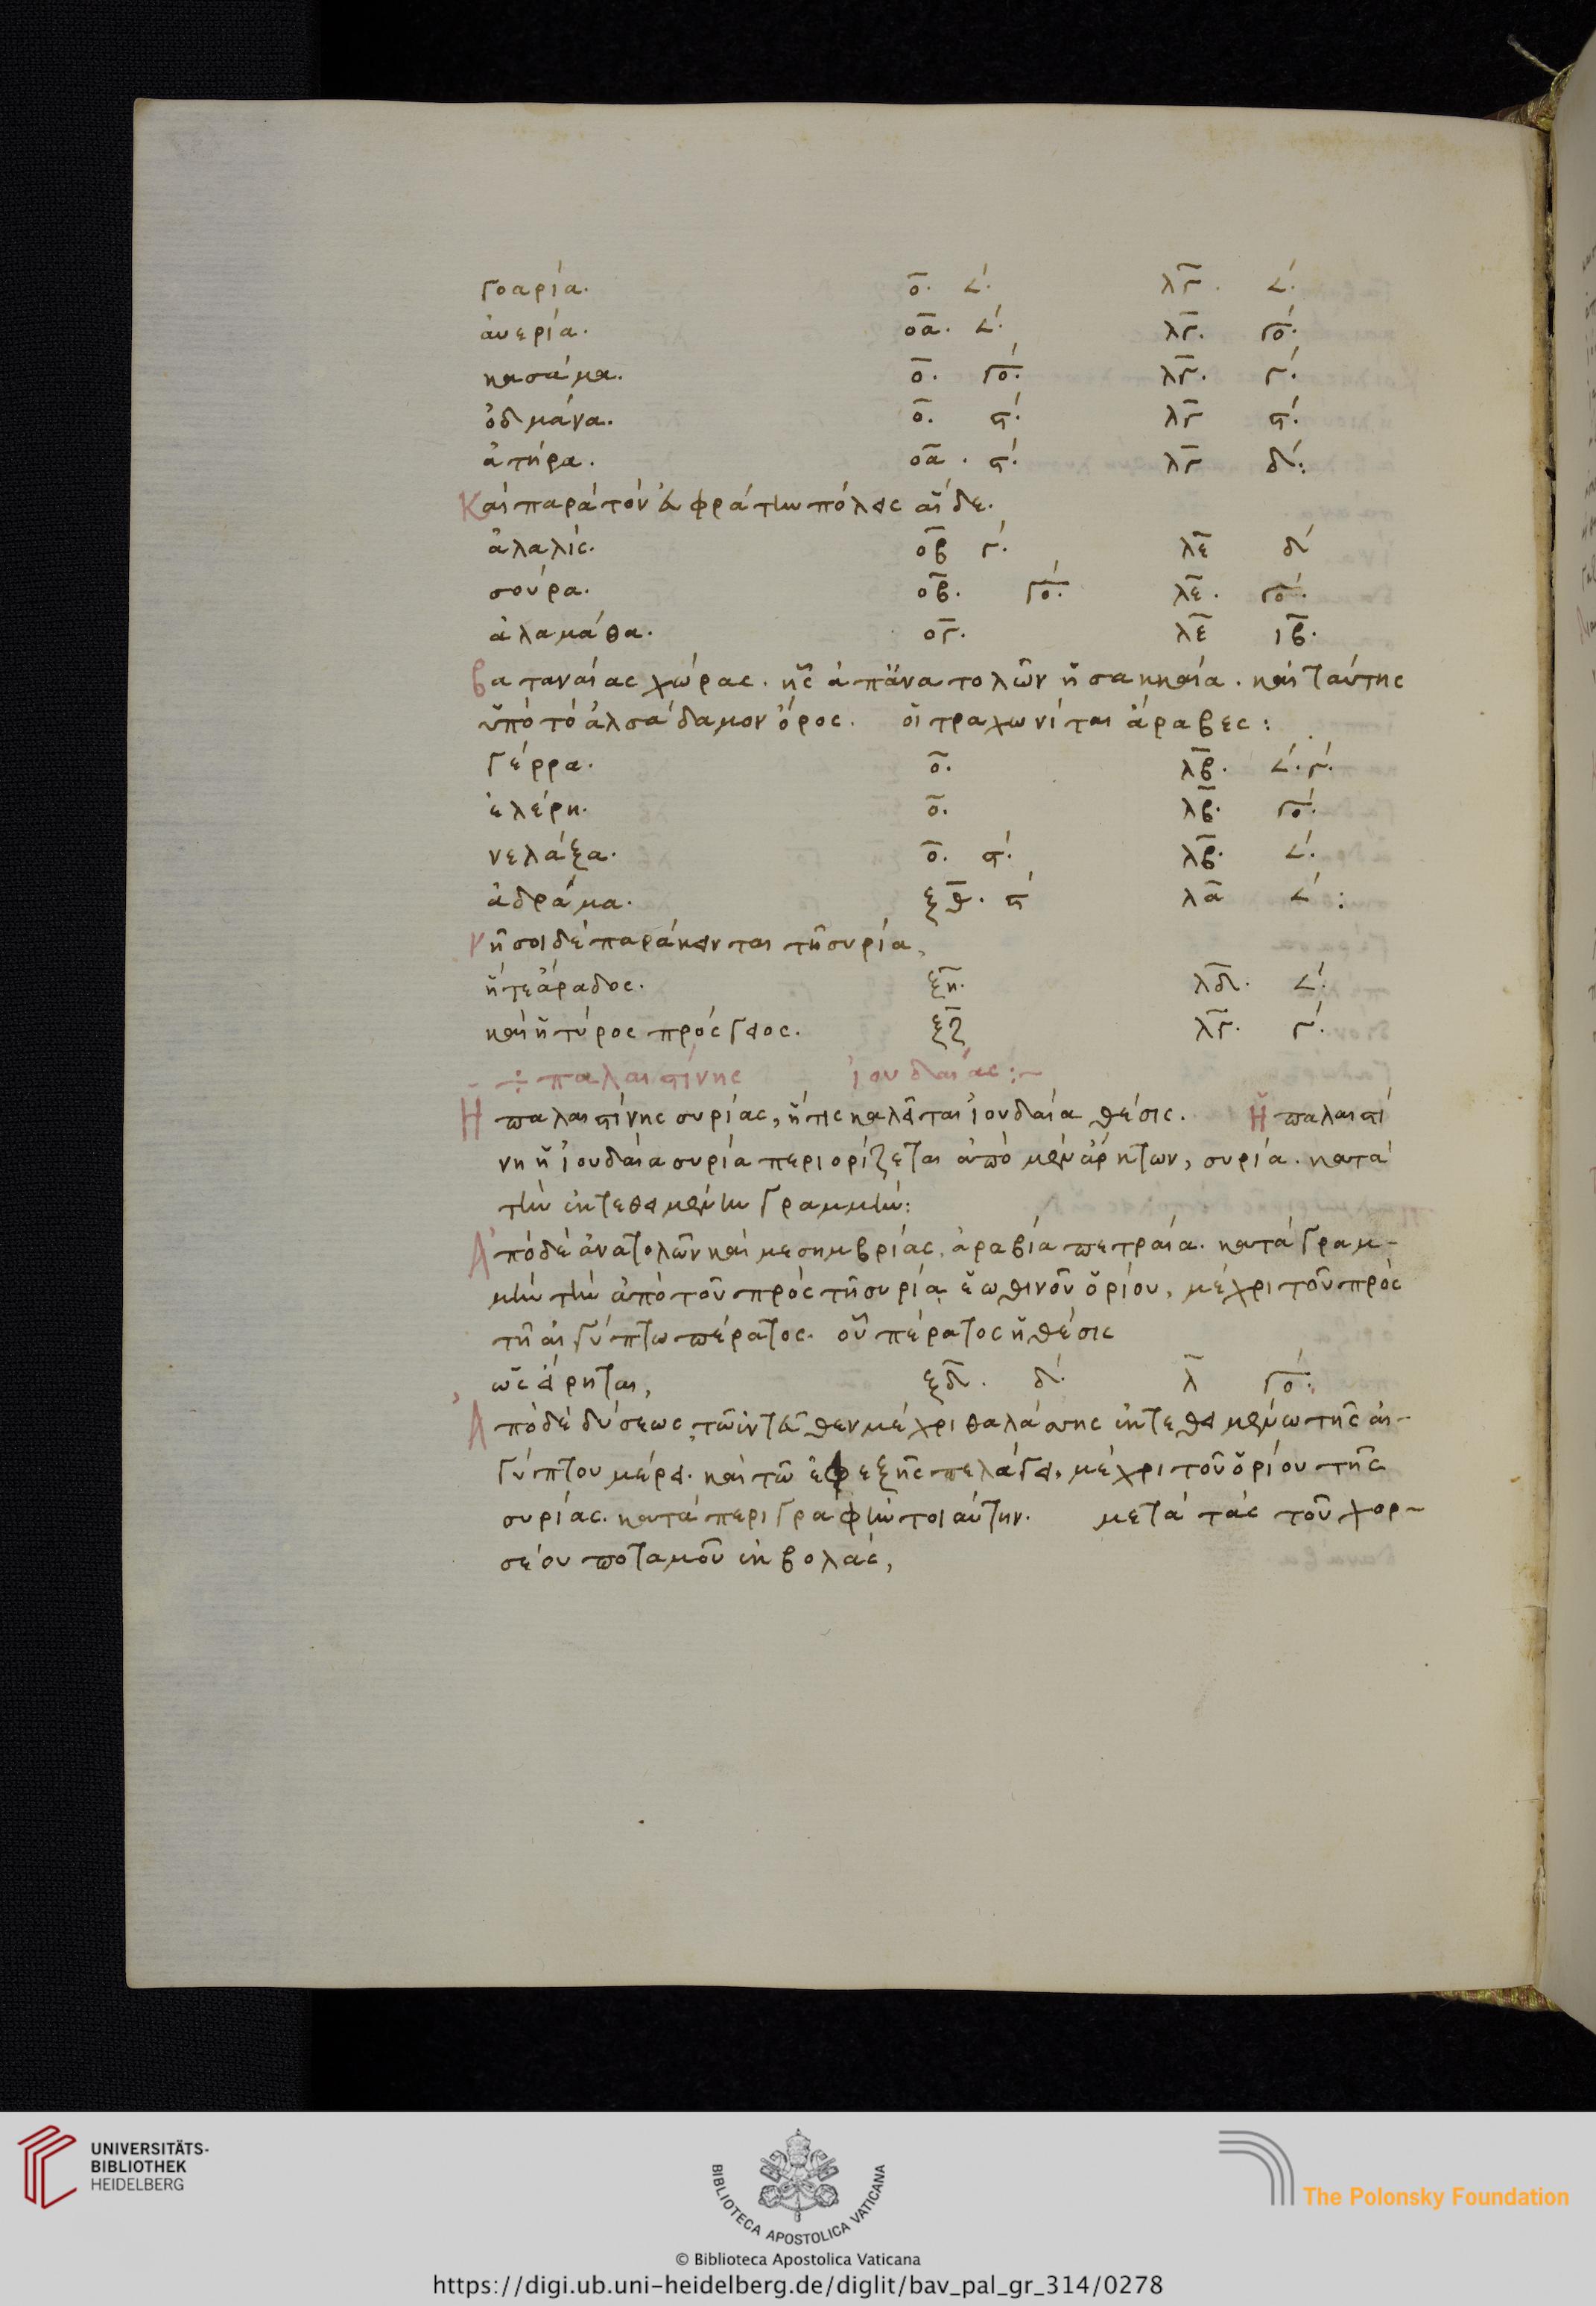 γοαρία. ο̅. 𐅵. λγ̅. 𐅵.
ἀυερία. οα̅. 𐅵. λγ̅. γο.
κασάμα. ο̅. γο. λγ̅. γ.
ὀδμάνα. ο̅. ϛ. λγ̅ ϛ.
ἀτήρα. οα̅. ϛ. λγ̅ δ:
Καὶ παρὰ τὸν εὐφράτην πόλεις αἵδε.
ἀλαλίς. οβ̅ γ. λε̅ δ
σούρα. οβ̅. γο. λε̅. γο.
ἀλαμάθα. ογ̅. λε̅ ιβ.
βαταναίας χώρας. ἧς ἀπ ἀνατολῶν ἡ σακκαία. καὶ ταύτης
ὑπὸ τὸ ἀλσάδαμον ὄρος. οἱ τραχωνίται ἄραβες:
γέρρα. ο̅. λβ̅. 𐅵. γ.
ἐλέρη. ο̅. λβ̅. γο.
νελάξα. ο̅. ϛ. λβ̅. 𐅵.
ἀδράμα. ξθ̅. ϛ λα̅ 𐅵:
νῆσοι δὲ παράκεινται τῇ συρία,
ἥ τε ἄραδος. ξη̅. λδ̅. 𐅵.
καὶ ἡ τύρος πρόσγειος. ξζ̅ λγ̅. γ.
÷ παλαιστίνης ἰουδαίας:~
Η παλαιστίνης συρίας, ἥτις καλεῖται ἰουδαία θέσις. Ἡ παλαιστί
νη ἢ ἰουδαία συρία περιορίζεται ἀπὸ μὲν ἄρκτων, συρία. κατὰ
τὴν ἐκτεθειμένην γραμμήν:
Ἀπὸ δὲ ἀνατολῶν καὶ μεσημβρίας, ἀραβία πετραία. κατὰ γραμ-
μὴν τὴν ἀπὸ τοῦ πρὸς τῇ συρία ἑωθινοῦ ὁρίου, μέχρι τοῦ πρὸς
τῇ αἰγύπτω πέρατος. οὗ πέρατος ἡ θέσις
ὡς εἴρηται, ξδ̅. δ. λ̅ γο:
Ἀπὸ δὲ δύσεως, τῶ ἐντεῦθεν μέχρι θαλάσσης ἐκτεθειμένω τῆς αἰ-
γύπτου μέρει. καὶ τῶ ἐφεξῆς πελάγει, μέχρι τοῦ ὁρίου τῆς
συρίας. κατὰ περιγραφὴν τοιαύτην. μετὰ τὰς τοῦ χορ-
σέου ποταμοῦ ἐκβολάς,
UNIVERSITÄTS-
BIBLIOTHEK
HEIDELBERG
BIBLIOTECA APOSTOLICA VATICANA
The Polonsky Foundation
© Biblioteca Apostolica Vaticana
https://digi.ub.uni-heidelberg.de/diglit/bav_pal_gr_314/0278